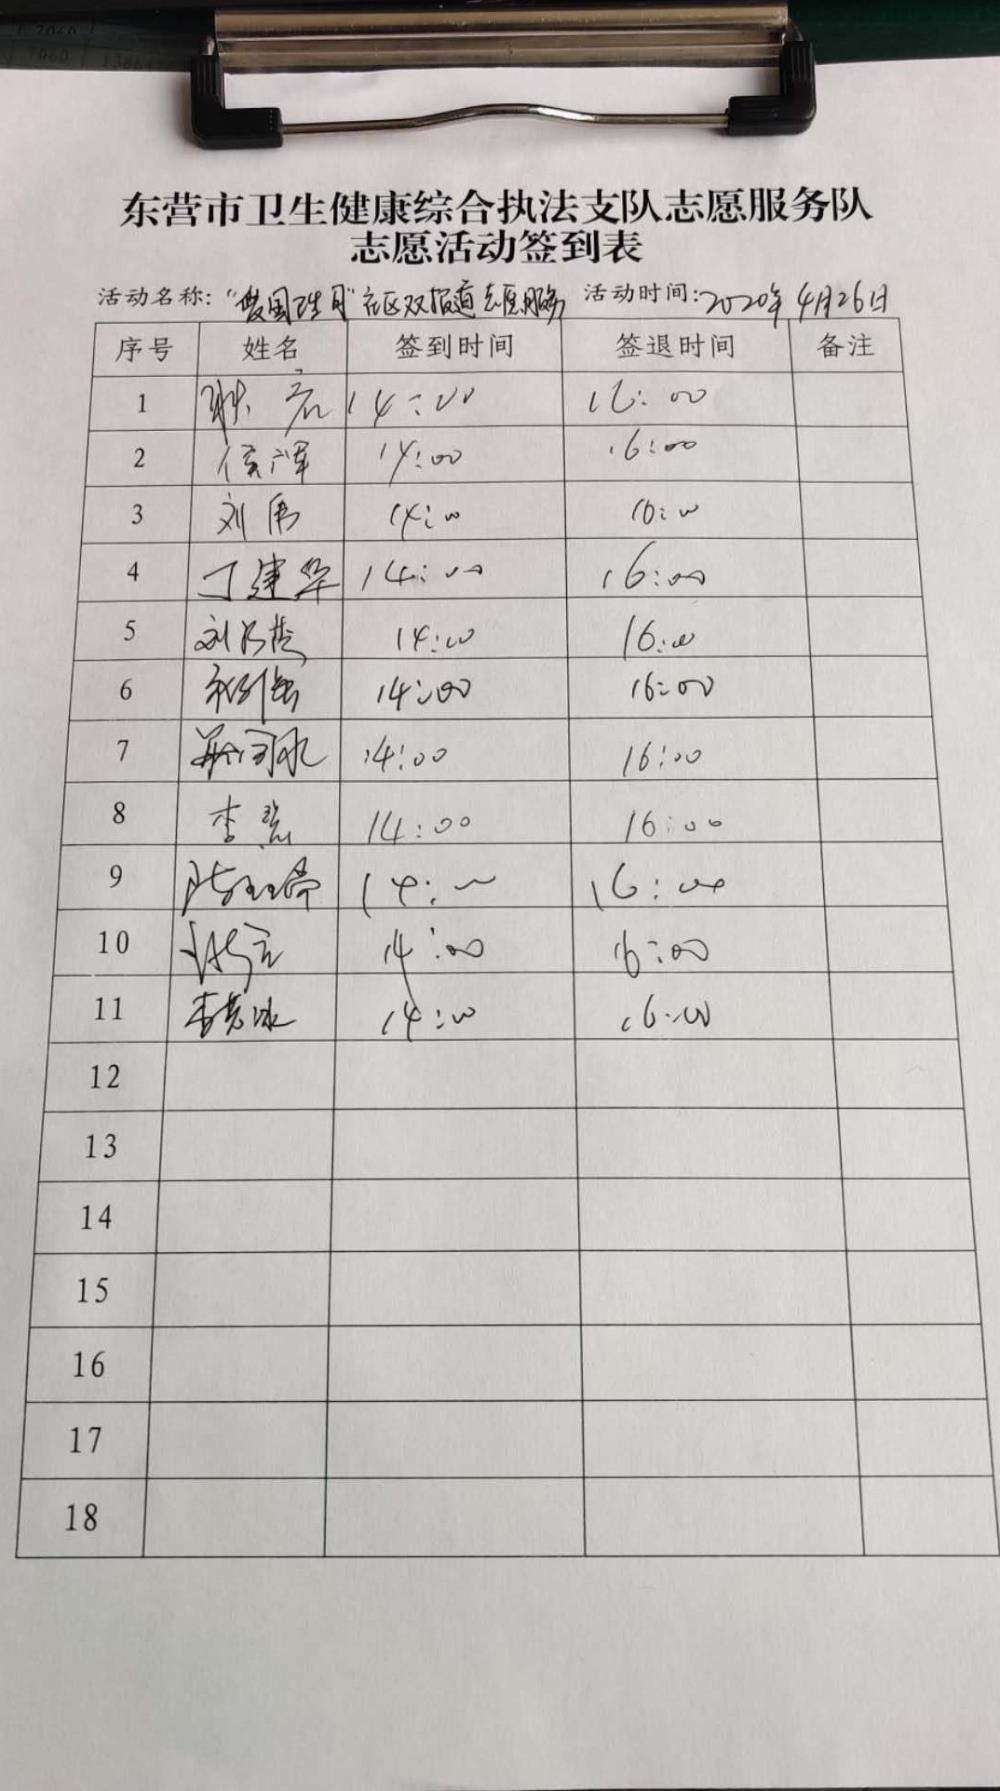 东营市卫生健康综合执法支队志愿服务队
志愿活动签到表
活动名称：“爱国卫生月”社区双报道志愿服务 活动时间：2020年4月26日
序号 姓名 签到时间 签退时间 备注
1 耿宏 14:00 16:00
2 侯晖 14:00 16:00
3 刘伟 14:00 16:00
4 丁建华 14:00 16:00
5 刘 14:00 16:00
6 14:00 16:00
7 14:00 16:00
8 李慧 14:00 16:00
9 陈玉婷 14:00 16:00
10 14:00 16:00
11 李 冰 14:00 16:00
12
13
14
15
16
17
18